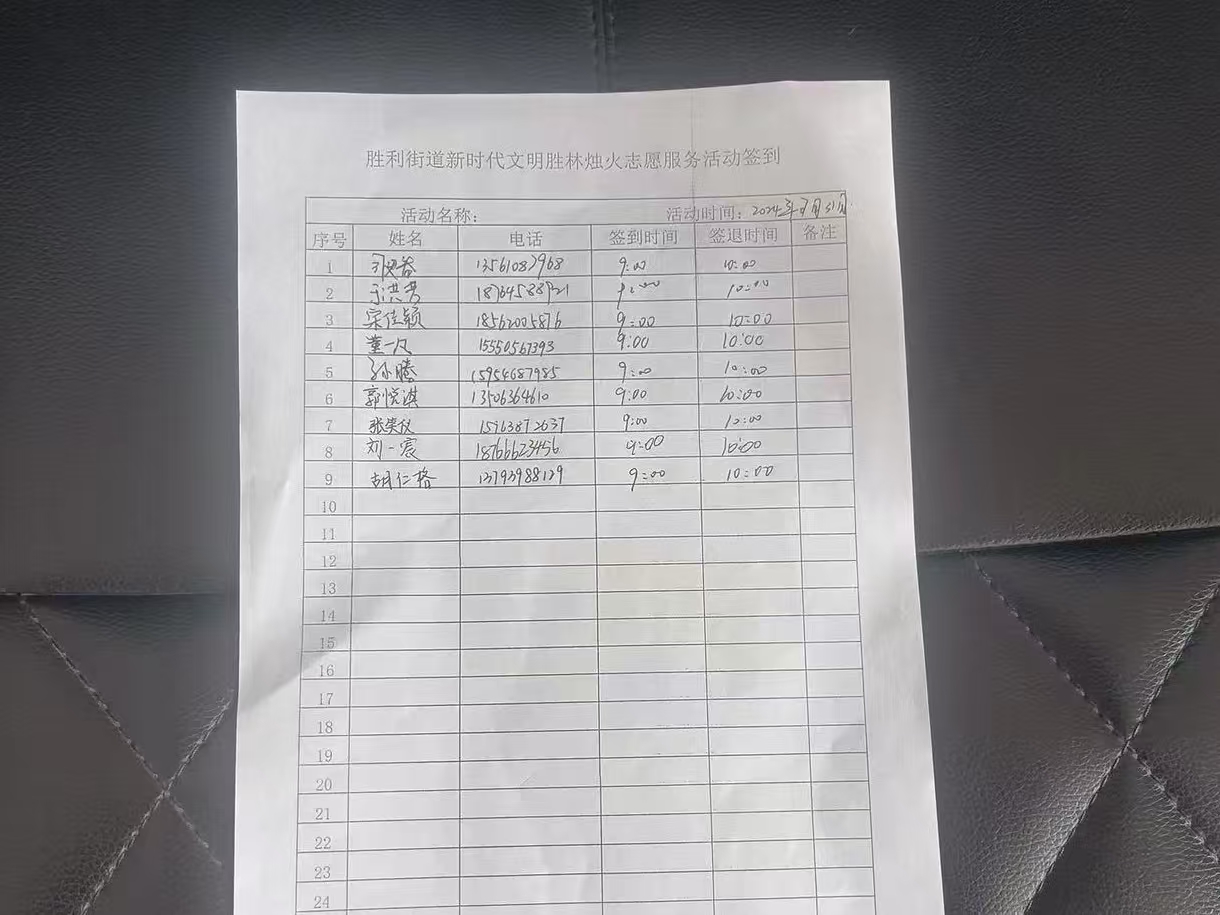 胜利街道新时代文明胜林烛火志愿服务活动签到
活动名称： 活动时间：2024年 月31日
序号 姓名 电话 签到时间 签退时间 备注
1 13561087968 9:00 10:00
2 于洪芳 18764588721 9:00 10:00
3 宋佳颖 18562005876 9:00 10:00
4 董一凡 15550567393 9:00 10:00
5 孙腾 15954687985 9:00 10:00
6 郭悦淇 13506364610 9:00 10:00
7 15763872637 9:00 10:00
8 刘一宸 18766623456 9:00 10:00
9 胡仁格 13793988139 9:00 10:00
10
11
12
13
14
15
16
17
18
19
20
21
22
23
24